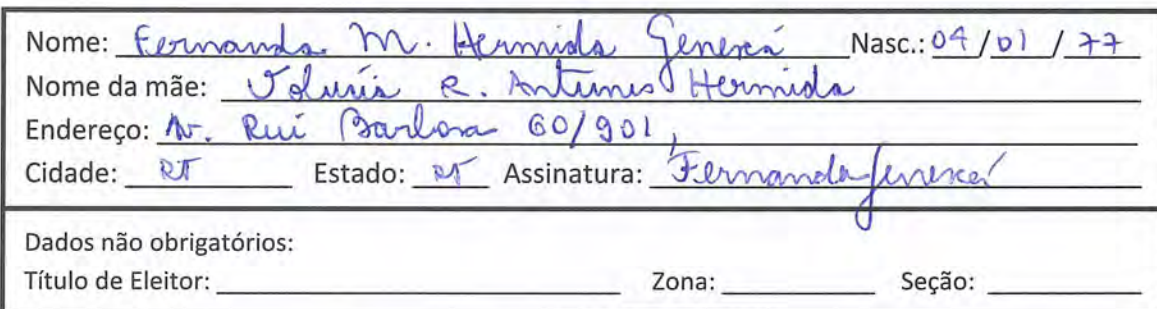 Nome: Fernanda M. Hermida Genexcá Nasc.: 04/01/77
Nome da mãe: R. Antunes Hermida
Endereço: Av. Rui Barbosa 60/901,
Cidade: RJ Estado: RJ Assinatura: Fernanda Genexcá
Dados não obrigatórios:
Título de Eleitor: Zona: Seção: